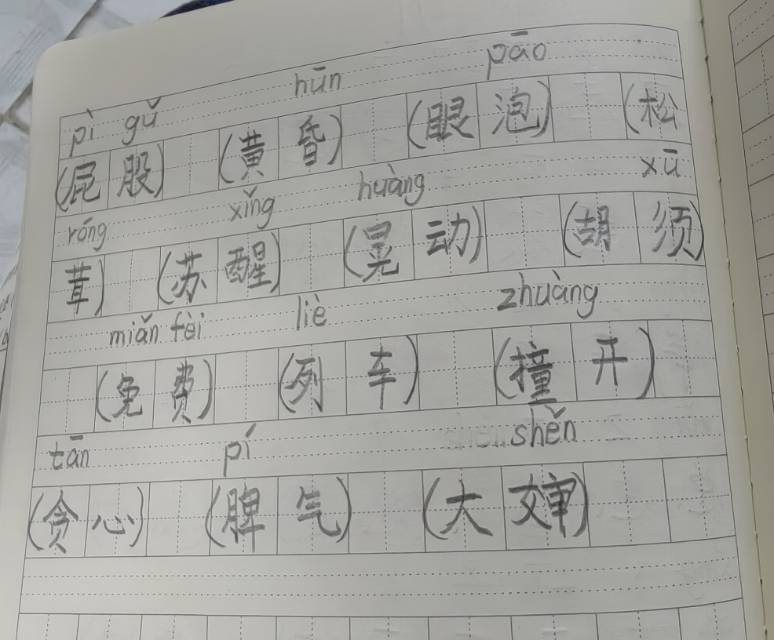 pì gǔ hūn pāo
(屁股) (黄昏) (眼泡) (松
róng xǐng huàng xū
茸) (苏醒) (晃动) (胡须)
miǎn fèi liè zhuàng
(免费) (列车) (撞开)
tān pí shěn
(贪心) (脾气) (大婶)